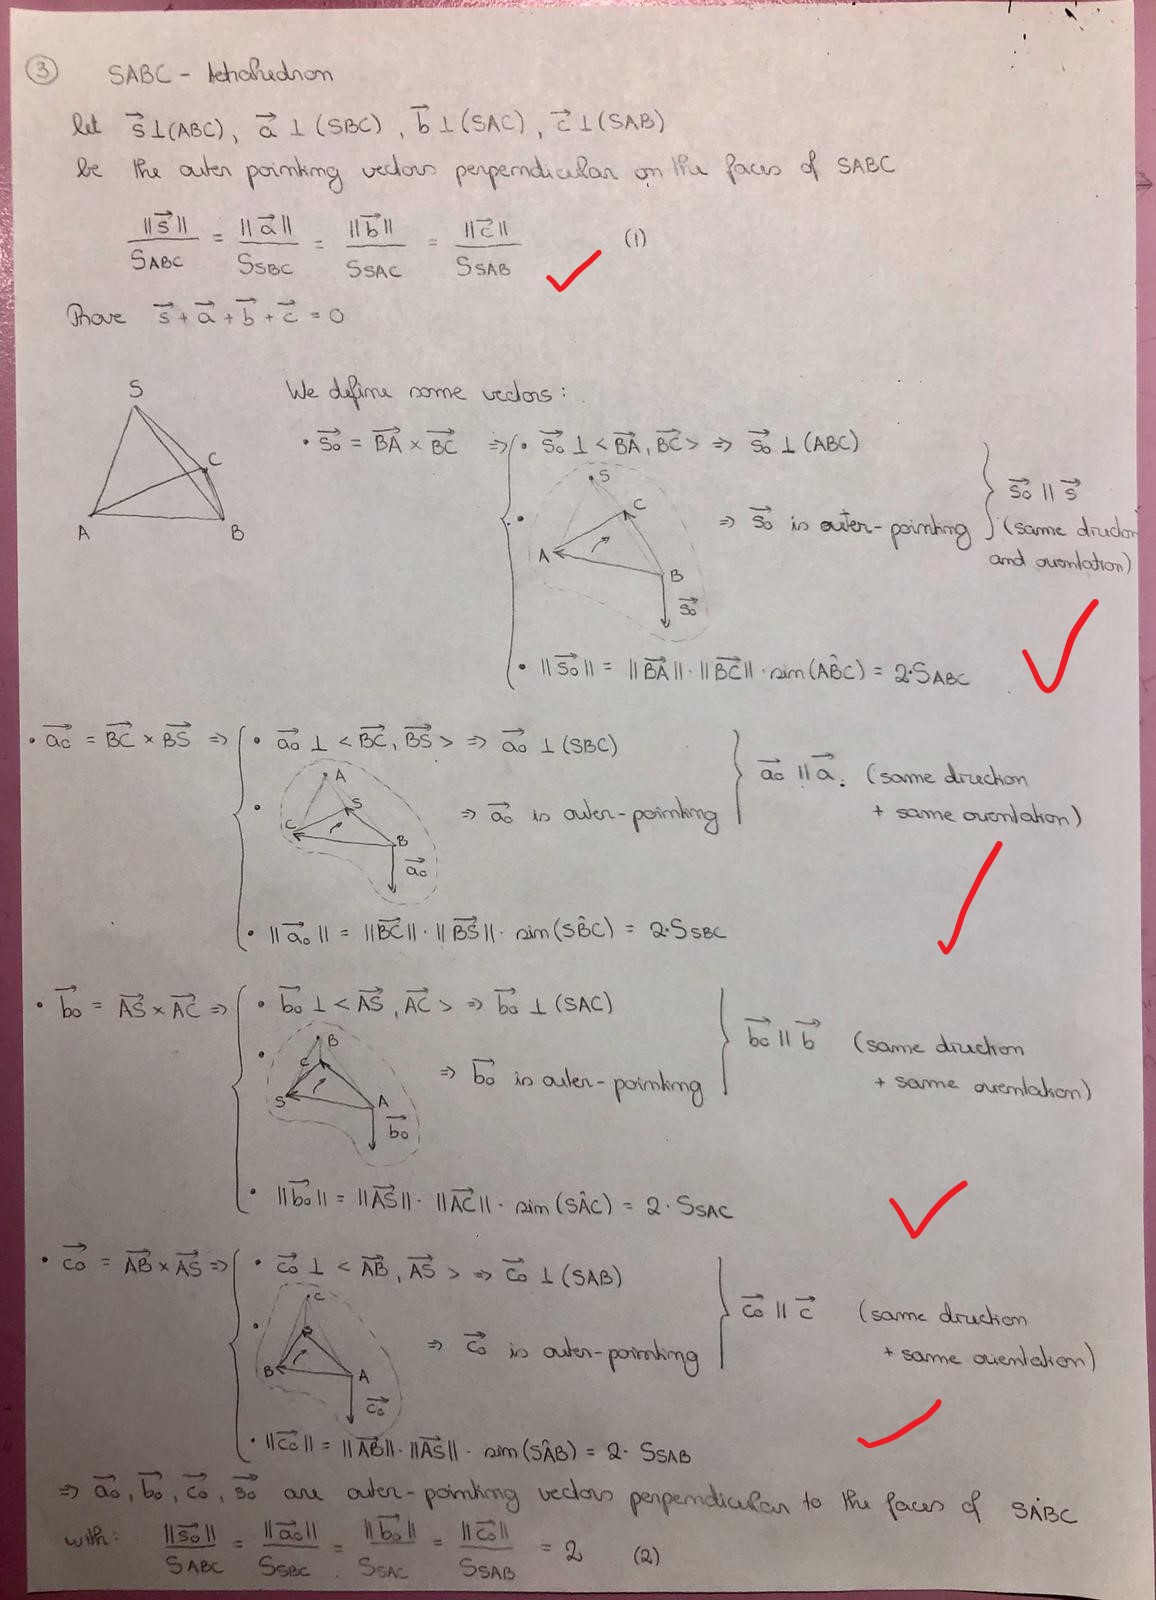 ③ SABC - tetrahedron
let s⃗ ⊥ (ABC), a⃗ ⊥ (SBC), b⃗ ⊥ (SAC), c⃗ ⊥ (SAB)
be the outer pointing vectors perpendicular on the faces of SABC
||s⃗||/S_ABC = ||a⃗||/S_SBC = ||b⃗||/S_SAC = ||c⃗||/S_SAB (1)
Prove s⃗ + a⃗ + b⃗ + c⃗ = 0
S
C
A
B
We define some vectors:
• s₀⃗ = BA⃗ × BC⃗ ⇒ • s₀⃗ ⊥ <BA⃗, BC⃗> ⇒ s₀⃗ ⊥ (ABC)
S
C
A
B
s₀⃗
• ⇒ s₀⃗ is outer-pointing
s₀⃗ || s⃗
(same direction
and orientation)
• ||s₀⃗|| = ||BA⃗||·||BC⃗||·sin(AB̂C) = 2·S_ABC
• a₀⃗ = BC⃗ × BS⃗ ⇒ • a₀⃗ ⊥ <BC⃗, BS⃗> ⇒ a₀⃗ ⊥ (SBC)
A
S
C
B
a₀⃗
• ⇒ a₀⃗ is outer-pointing
a₀⃗ || a⃗. (same direction
+ same orientation)
• ||a₀⃗|| = ||BC⃗||·||BS⃗||·sin(SB̂C) = 2·S_SBC
• b₀⃗ = AS⃗ × AC⃗ ⇒ • b₀⃗ ⊥ <AS⃗, AC⃗> ⇒ b₀⃗ ⊥ (SAC)
B
C
S
A
b₀⃗
• ⇒ b₀⃗ is outer-pointing
b₀⃗ || b⃗ (same direction
+ same orientation)
• ||b₀⃗|| = ||AS⃗||·||AC⃗||·sin(SÂC) = 2·S_SAC
• c₀⃗ = AB⃗ × AS⃗ ⇒ • c₀⃗ ⊥ <AB⃗, AS⃗> ⇒ c₀⃗ ⊥ (SAB)
C
B
A
c₀⃗
• ⇒ c₀⃗ is outer-pointing
c₀⃗ || c⃗ (same direction
+ same orientation)
• ||c₀⃗|| = ||AB⃗||·||AS⃗||·sin(SÂB) = 2·S_SAB
⇒ a₀⃗, b₀⃗, c₀⃗, s₀⃗ are outer-pointing vectors perpendicular to the faces of SABC
with: ||s₀⃗||/S_ABC = ||a₀⃗||/S_SBC = ||b₀⃗||/S_SAC = ||c₀⃗||/S_SAB = 2 (2)